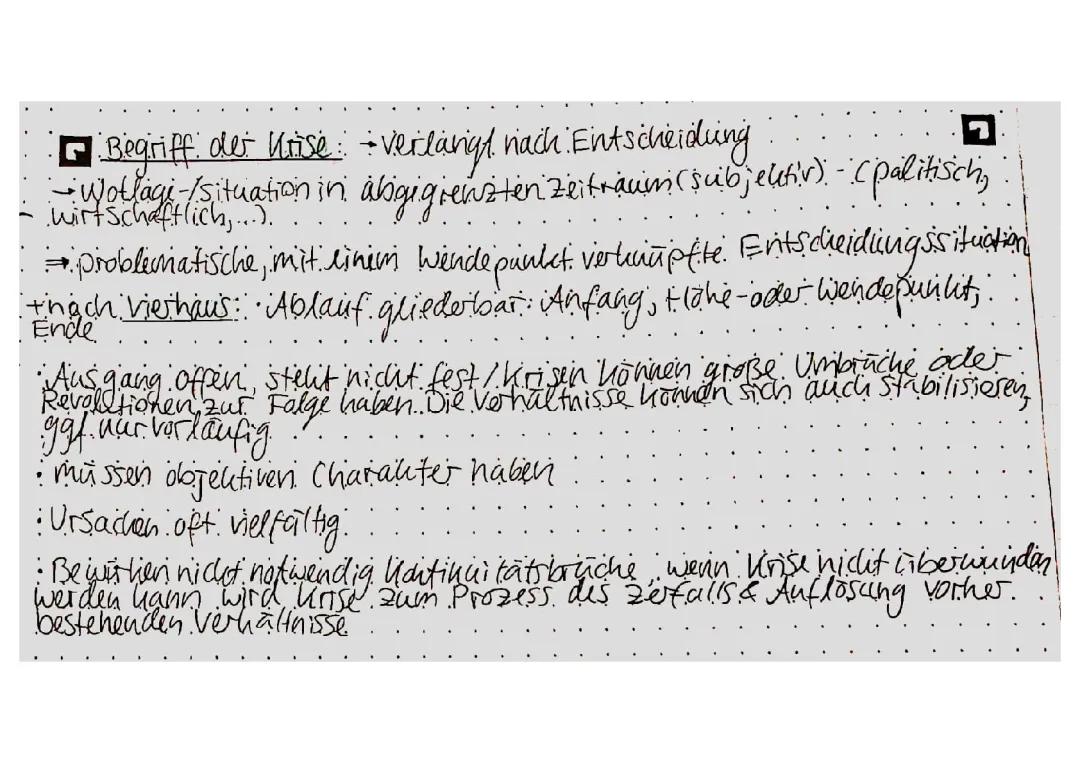 Begriff der Krise: → verlangt nach Entscheidung
→ Notlage-/situation in abgegrenzten Zeitraum (subjektiv) - (politisch,
wirtschaftlich,...)
⇒ problematische, mit einem Wendepunkt verknüpfte Entscheidungssituation
+nach Vierhaus: · Ablauf gliederbar: Anfang, Höhe- oder Wendepunkt,
Ende
· Ausgang offen, steht nicht fest / Krisen können große Umbrüche oder
Revolutionen zur Folge haben. Die Verhältnisse können sich auch stabilisieren,
ggf. nur vorläufig
· müssen objektiven Charakter haben
· Ursachen oft vielfältig
· Bewirken nicht notwendig Kontinuitätsbrüche, wenn Krise nicht überwunden
werden kann wird Krise zum Prozess des Zerfalls & Auflösung vorher
bestehenden Verhältnisse